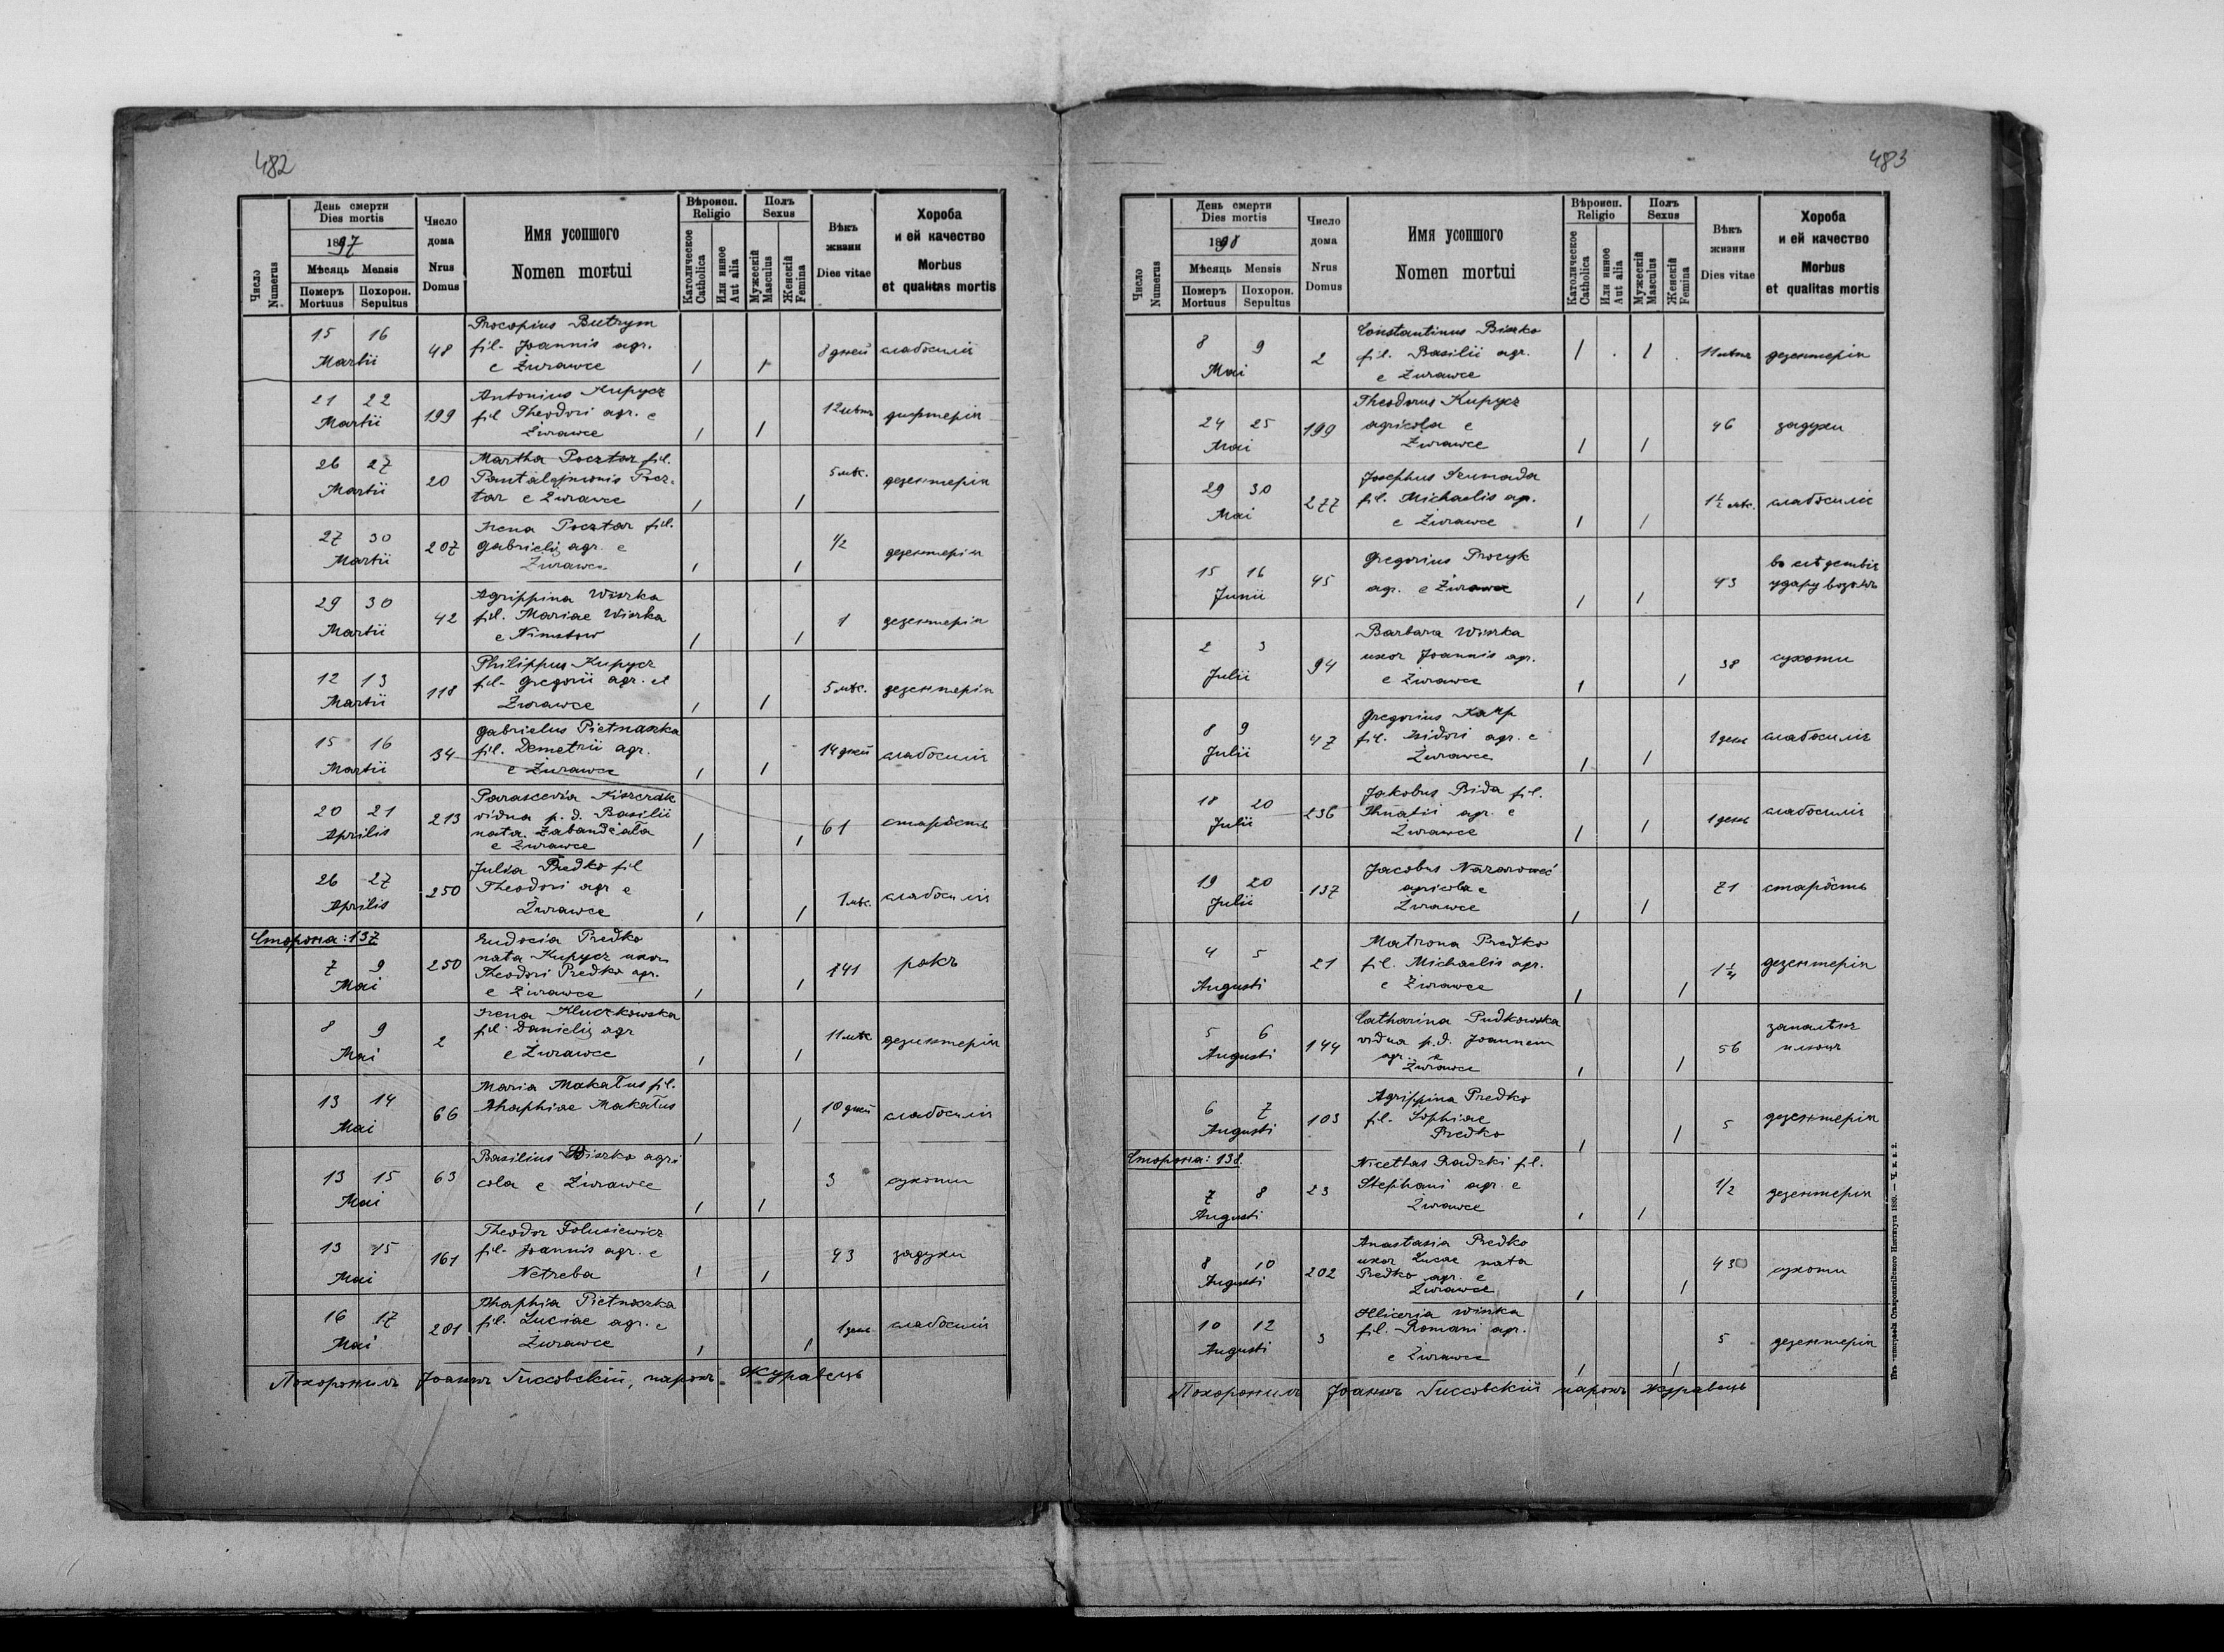 482
День смерти
Dies mortis
1897
Мѣсяць Mensis
Померъ Похорон.
Mortuus Sepultus
Число
Numerus
Число
дома
Nrus
Domus
Имя усопшого
Nomen mortui
Вѣроисп.
Religio
Католическое
Catholica
Или инное
Aut alia
Полъ
Sexus
Мужескій
Masculus
Женскій
Femina
Вѣкъ
жизни
Dies vitae
Хороба
и ей качество
Morbus
et qualitas mortis
15 16 Martii 48
Procopius Butrym
fil. Joannis agr.
e Żurawce
1 1 8 дней слабосиліє
21 22 Martii 199
Antonius Kupycz
fil Theodori agr. e
Żurawce
1 1 12 лѣтъ дифтерія
26 27 Martii 20
Martha Pocztar fil.
Pantalejmonis Pocz-
tar e Żurawce
1 1 5 мѣс. дезентерія
27 30 Martii 207
Irena Pocztar fil.
Gabrielis agr. e
Żurawce
1 1 1/2 дезентерія
29 30 Martii 42
Agrippina Wiszka
fil. Mariae Wiszka
e Nimstow
1 1 1 дезентерія
12 13 Martii 118
Philippus Kupycz
fil. Gregorii agr. e
Żurawce
1 1 5 мѣс. дезентерія
15 16 Martii 34
Gabrielus Pietnaszka
fil. Demetrii agr.
e Żurawce
1 1 14 дней слабосиліє
20 21 Aprilis 213
Parascevia Kiszczak
vidua p. d. Basilii
nata Zabandžała
e Żurawce
1 1 61 старôсть
26 27 Aprilis 250
Julia Predko fil
Theodori agr e
Żurawce
1 1 1 мѣс. слабосиліє
Сторона: 137
7 9 Mai 250
Eudocia Predko
nata Kupycz uxor
Theodori Predko agr.
e Żurawce
1 1 141 ракъ
8 9 Mai 2
Irena Kluczkowska
fil. Danielis agr
e Żurawce
1 1 11 мѣс дезинтерія
13 14 Mai 66
Maria Makałus fil.
Ahaphiae Makałus
1 1 10 дней слабосиліє
13 15 Mai 63
Basilius Biszko agri
cola e Żurawce
1 1 3 сухоти
13 15 Mai 161
Theodor Folusiewicz
fil. Joannis agr. e
Netreba
1 1 43 задухи
16 17 Mai 201
Ahaphia Pietnaszka
fil. Luciae agr. e
Żurawce
1 1 1 день слабосиліє
Похоронилъ Іоаннъ Гиссовскій, парохъ Журавець
483
День смерти
Dies mortis
1898
Мѣсяць Mensis
Померъ Похорон.
Mortuus Sepultus
Число
Numerus
Число
дома
Nrus
Domus
Имя усопшого
Nomen mortui
Вѣроисп.
Religio
Католическое
Catholica
Или инное
Aut alia
Полъ
Sexus
Мужескій
Masculus
Женскій
Femina
Вѣкъ
жизни
Dies vitae
Хороба
и ей качество
Morbus
et qualitas mortis
8 9 Mai 2
Constantinus Biszko
fil. Basilii agr.
e Żurawce
1 1 11 лѣтъ дезентерія
24 25 Mai 199
Theodorus Kupycz
agricola e
Żurawce
1 1 46 задухи
29 30 Mai 277
Josephus Szumada
fil. Michaelis agr.
e Żurawce
1 1 1½ мѣс. слабосиліє
15 16 Junii 45
Gregorius Procyk
agr. e Żurawce
1 1 43 во слѣдствіє
удару возомъ
2 3 Julii 94
Barbara Wiszka
uxor Joannis agr.
e Żurawce
1 1 38 сухоти
8 9 Julii 47
Gregorius Karp
fil. Isidori agr. e
Żurawce
1 1 1 день слабосиліє
18 20 Julii 236
Jakobus Bida fil.
Ihnatii agr. e
Żurawce
1 1 1 день слабосиліє
19 20 Julii 137
Jacobus Nazarowec
agricola e
Żurawce
1 1 71 старôсть
4 5 Augusti 21
Matrona Predko
fil. Michaelis agr.
e Żurawce
1 1 1¼ дезентерія
5 6 Augusti 144
Catharina Pudkowska
vidua p. d. Joannem
agr. e
Żurawce
1 1 56 запалѣнє
плюць
6 7 Augusti 103
Agrippina Predko
fil. Sophiae
Predko
1 1 5 дезентерія
Сторона: 138
7 8 Augusti 23
Nicethas Radzki fil.
Stephani agr. e
Żurawce
1 1 1/2 дезентерія
8 10 Augusti 202
Anastasia Predko
uxor Lucae nata
Predko agr. e
Żurawce
1 1 43 сухоти
10 12 Augusti 3
Hliceria Wiszka
fil. Romani agr.
e Żurawce
1 1 5 дезентерія
Похоронилъ Іоаннъ Гиссовскій парохъ Журавець
Изъ типографіи Ставропигійского Института 1880. — Ч. к. в. 2.